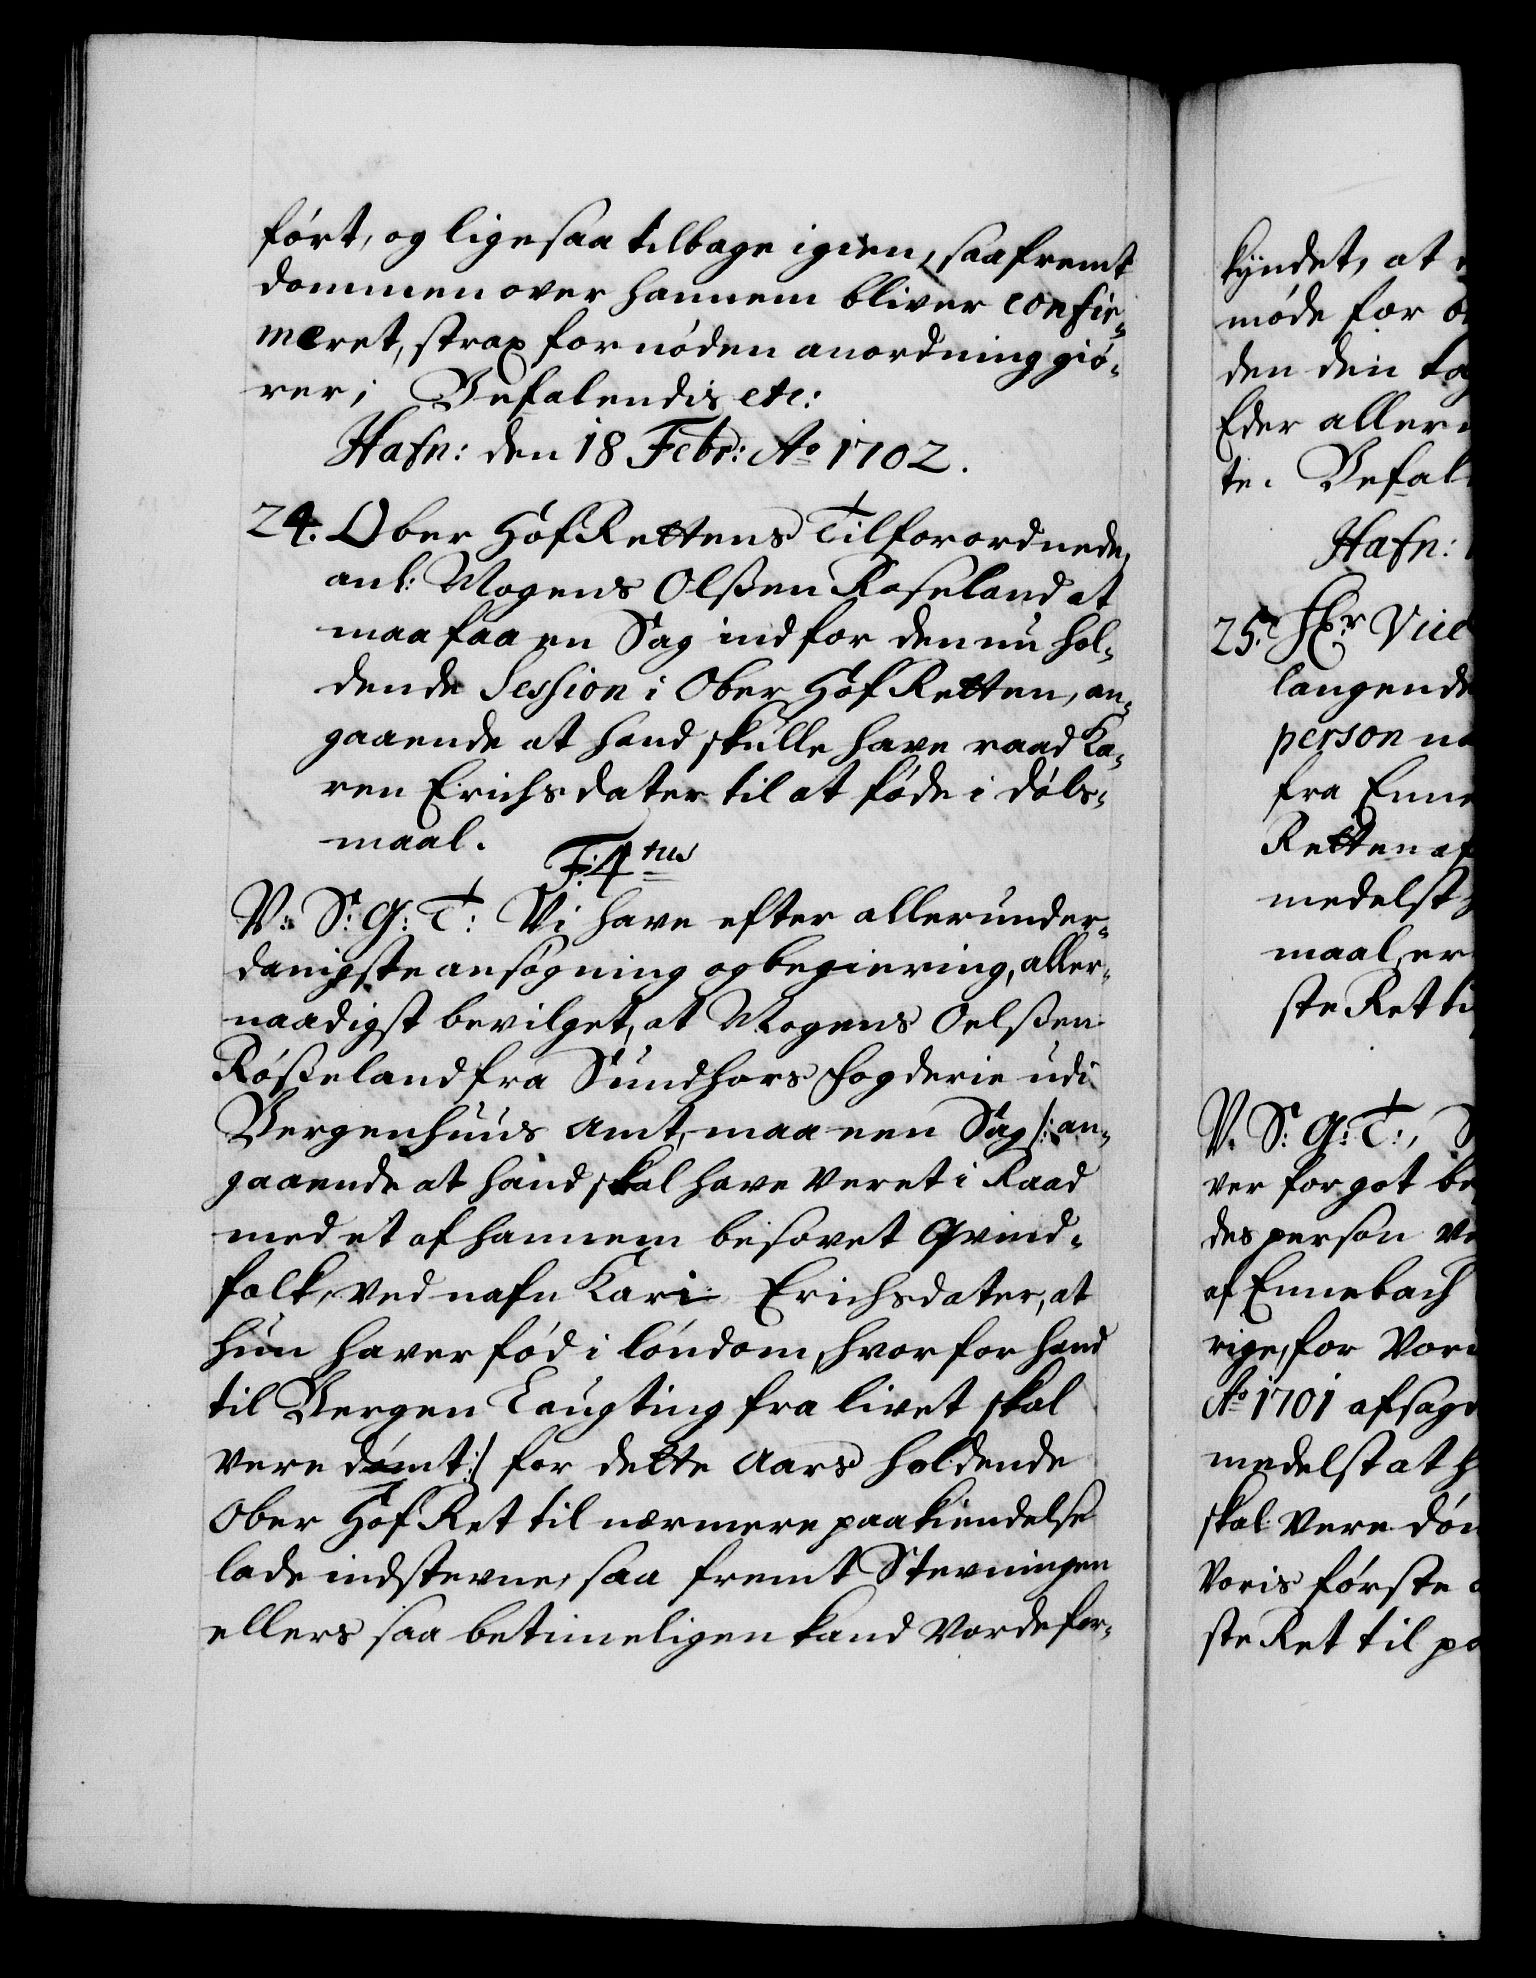 ført, og ligesaa tilbage igien, saafremt
dommen over hannem bliver confir-
meret, strax fornøden anordning giø-
rer; Befalendis etc:
Hafn: den 18 Febr: Ao 1702.
24. Ober Hof Rettens Tilforordnede,
anl: Mogens Olßen Roseland at
maa faa en Sag ind for den nu hol-
dende Session i Ober Hof Retten, an-
gaaende at hand skulle have raad Ka-
ren Erichsdater til at føde i døls-
maal.
F: 4tus
V: S: G: T: Vi have efter allerunder-
danigste ansøgning og begiering, aller-
naadigst bevilget, at Mogens Oelßen
Røßeland fra Sundhors fogderie udi
Bergenhuus Amt, maa een Sag /: an-
gaaende at hand skal have veret i Raad
med et af hannem besovet Qvind-
folk, ved nafn Kari Erichsdater, at
hun haver fød i løndom, hvorfor hand
til Bergen Laugting fra livet skal
vere dømt :/ for dette Aars holdende
Ober Hof Ret til nærmere paakiendelse
lade indstevne, saa fremt Stevningen
ellers saa betimeligen kand vorde for-
kyndet, at
møde for
den den
Eder aller
te.
Hafn:
25. Hr Vice
langende
person
fra
Retten af
medelst
maal, er
ste Ret
V. S: G: T:,
ver forgot
des person
af Ennebach
rige, for
Ao 1701 afsag
medelst at
skal vere
Voris første
ste Ret til